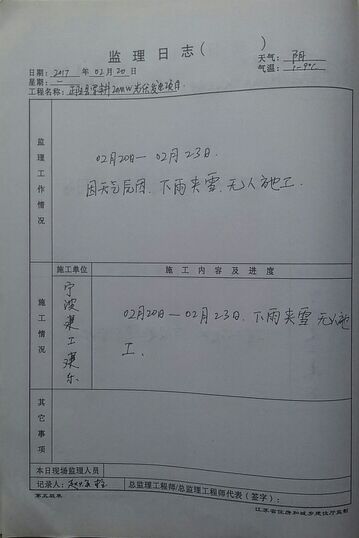 监理日志（ ）
日期：2017 年 02月 20日 天气：阴
星期：一 气温：1-9℃
工程名称：20MW光伏发电项目
监理工作情况
02月20日— 02月23日.
因天气原因、下雨夹雪、无人施工.
施工单位 施工内容及进度
施工情况
宁波建工建乐
02月20日—02月23日、下雨夹雪 无人施
工.
其它事项
本日现场监理人员
记录人： 总监理工程师/总监理工程师代表（签字）：
第五版表 江苏省住房和城乡建设厅监制